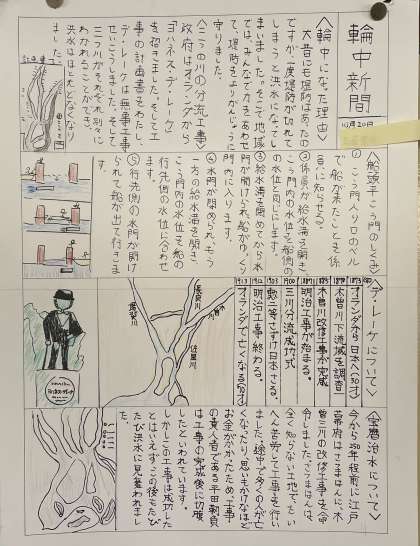 輪中新聞
10月20日
〈輪中になった理由〉
大昔にも堤防はあったの
ですが一度堤防が切れて
しまうと洪水になってし
まいました。そこで地域
では、みんなで力をあわせ
て、堤防をよりがんじょうに
守りました。
〈三つの川の分流工事〉
政府はオランダから
「ヨハネス・デ・レーケ」
を招きました。そして工
事の計画書をわたし、
デ・レーケは無事工事を
せいこうしました。そして、
三つの川がそれぞれ別々に
わかれることができ、
洪水はほとんどなくなり
ました。
〈船頭平こう門のしくみ〉
① こう門入り口のベル
で船が来たことを係
員に知らせる。
② 係員が給水溝を開き、
こう門内の水位を船側の
水位と同じにします。
③ 給水溝を閉めてから水
門が開けられ、船がゆっくり
門内に入ります。
④ 水門が閉められ、もう
一方の給水溝を開き、
こう門内の水位を船の
行先側の水位に合わせ
ます。
⑤ 行先側の水門が開け
られて船が出て行きま
す。
〈デ・レーケについて〉
1873 オランダから日本へ(30才)
木曽川下流域を調査
木曽川改修工事が完成
明治工事が始まる。
1900 三川分流成功式
1903 勲二等さずけ日本さる。
1912 明治工事終わる。
1913 オランダで亡くなる
長良川
木曽川
揖斐川
〈宝暦治水について〉
今から250年程前に江戸
幕府はさつまはんに、木
曽三川の改修工事を命
令しました。さつまはんは、
全く知らない土地で、たい
へん苦労して工事を行い
ました。途中で多くの人が亡
くなったり、思いもかけなほど
お金がかかったため、工事
の責人者である平田靭負
は工事の完成後に切腹
したといわれています。
しかしこの工事は成功した
とはいえず、この後もたび
たび洪水に見舞われまし
た。